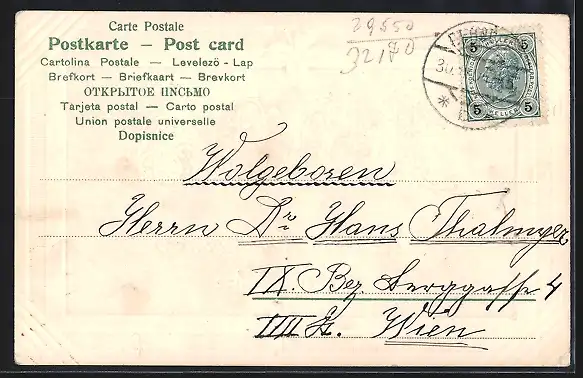 Carte Postale
Postkarte – Post card
Cartolina Postale — Levelező - Lap
Brefkort — Briefkaart — Brevkort
ОТКРЫТОЕ ПИСЬМО
Tarjeta postal — Carto postal
Union postale universelle
Dopisnice
29550
32170
5 5
5 HELLER 5
Wolgeboren
Herrn Dr Hans Thalmyer
IX. Bez Berggasse 4
Wien